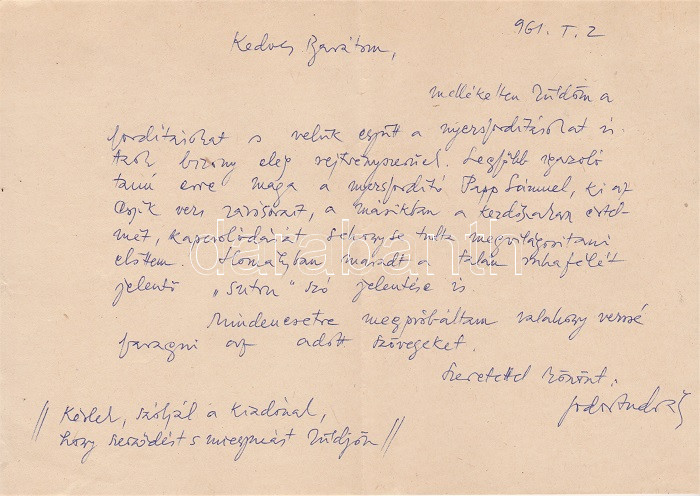 961. I. 2
Kedves Barátom,
mellékelten küldöm a
fordításokat s velük együtt a nyersfordításokat is.
Azok bizony elég rejtvényszerűek. Legfőbb igazoló
tanú erre maga a nyersfordító Papp Sámuel, ki az
egyik vers zárósorait, a másikban a kezdőszakasz értel-
mét, kapcsolódását sehogyse tudta megvilágosítani
előttem. Homályban maradt a talán ruhafélét
jelentő "sutru" szó jelentése is.
Mindenesetre megpróbáltam valahogy verssé
faragni az adott szövegeket.
Szeretettel köszönt:
Fodor András
// Kérlek, szóljál a kiadónak,
hogy szerződést s miegymást küldjön //
darabanth